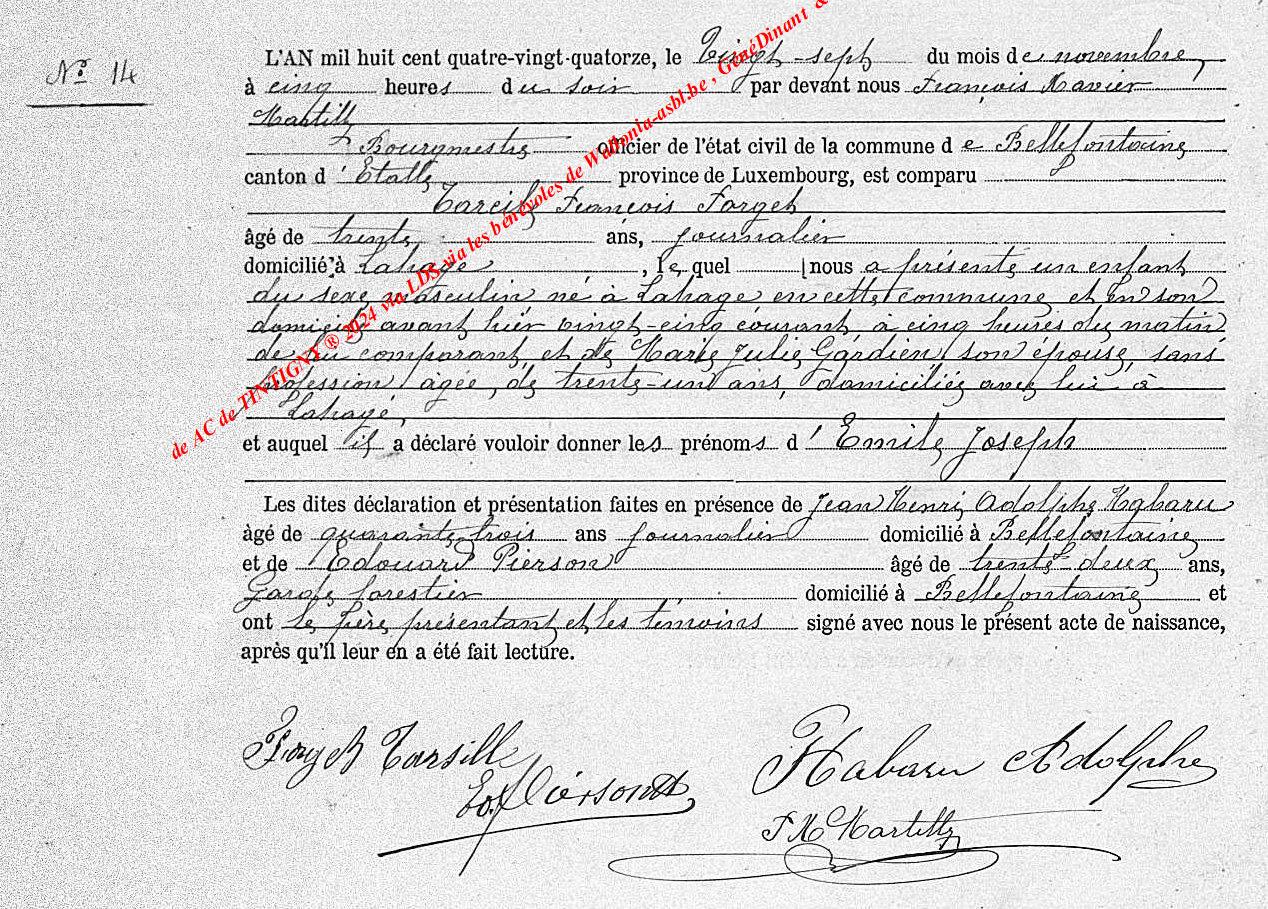 N° 14
L'AN mil huit cent quatre-vingt-quatorze, le Vingt-sept du mois de novembre,
à cinq heures du soir par devant nous François Xavier
Martilly
Bourgmestre officier de l'état civil de la commune de Bellefontaine
canton d'Etalle province de Luxembourg, est comparu
Tarcile François Forget
âgé de trente ans, journalier
domicilié à Lahage, lequel nous a présenté un enfant
du sexe masculin né à Lahage en cette commune et en son
domicile avant hier vingt-cinq courant à cinq heures du matin
de lui comparant et de Marie Julie Gardien son épouse, sans
profession, âgée de trente-un ans, domiciliée avec lui à
Lahage,
et auquel il a déclaré vouloir donner les prénoms d'Emile Joseph
Les dites déclaration et présentation faites en présence de Jean Henri Adolphe Habaru
âgé de quarante-trois ans journalier domicilié à Bellefontaine
et de Edouard Pierson âgé de trente-deux ans,
Garde forestier domicilié à Bellefontaine et
ont le père présentant et les témoins signé avec nous le présent acte de naissance,
après qu'il leur en a été fait lecture.
Forget Tarsille
Ed. Pierson
Habaru Adolphe
F X Martilly
de AC de TINTIGNY ® 2024 via LDS via les bénévoles de Wallonia-asbl.be, GénéDinant &